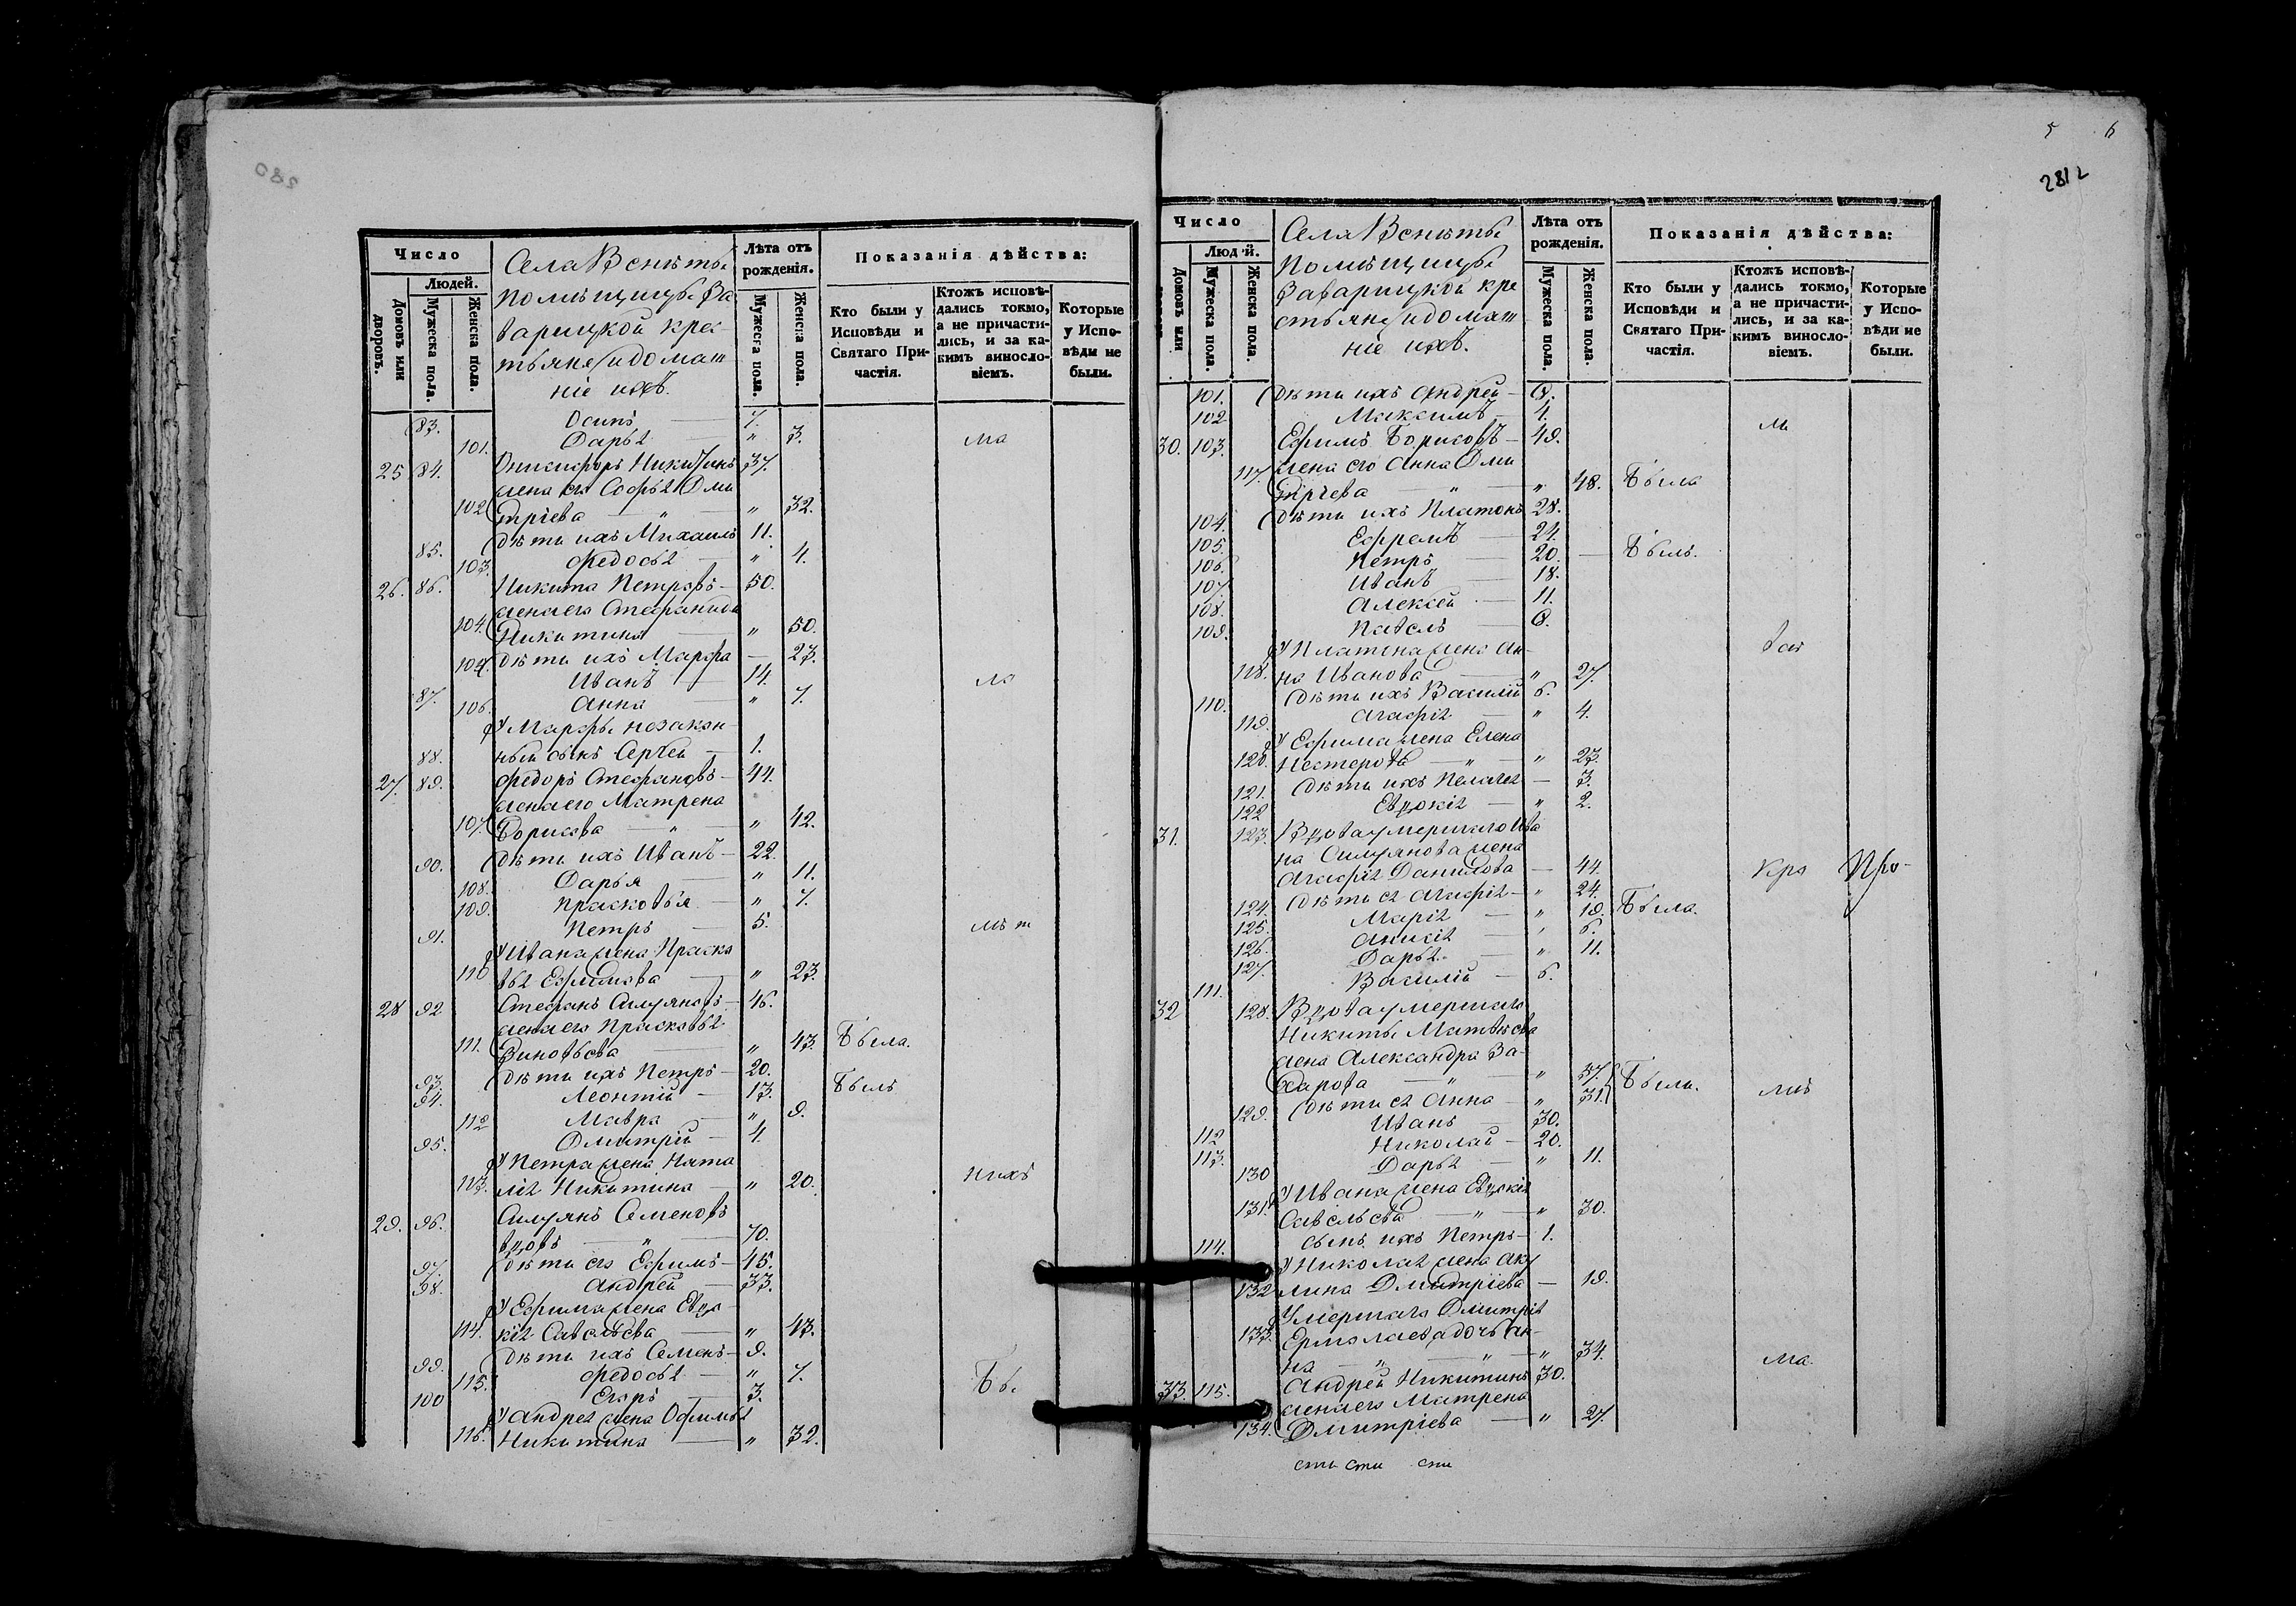 280
Число
Людей.
Домовъ или дворовъ.
Мужеска пола.
Женска пола.
Села Вснѣты
помѣщицы За
варицкой крес-
тьяне и домаш
ніе ихъ.
Лѣта отъ рожденія.
Мужеска пола.
Женска пола.
Показанія дѣйства:
Кто были у Исповѣди и Святаго Причастія.
Ктожъ исповѣдались токмо, а не причастились, и за какимъ винословіемъ.
Которые у Исповѣди не были.
83. Осипъ 7.
101. Дарья " 3. ма
25 84. Никифоръ Никитинъ 37.
жена его Софья Дми
102 тріева " " 32.
85. дѣти ихъ Михаилъ 11.
103. Федосья " 4.
26. 86. Никита Петровъ 50.
жена его Стефанида
104. Никитина " 50.
105. дѣти ихъ Марфа 23.
87. Иванъ 14.
106. Анна " 7.
У Марфы незакон-
88. ный сынъ Сергѣй 1.
27. 89. Федоръ Стефановъ 44.
жена его Матрена
107. Борисова " " 42.
90. дѣти ихъ Иванъ 22.
108. Дарья " 11.
109. Прасковья " 7.
91. Петръ 5.
У Ивана жена Праско
110 вья Ефимова " 23.
28 92 Стефанъ Симяновъ 46.
жена его Прасковья
111. Зиновьева " 43. была.
93. дѣти ихъ Петръ 20.
94. Леонтій 13. былъ
112 Мавра " 9.
95. Дмитрій 4.
У Петра жена Ната
113. лія Никитина " 20. нихъ
29. 96. Симянъ Семеновъ
вдовъ " 70.
97. дѣти его Ефимъ 45.
98. Андрей 33.
У Ефима жена Евдо-
114. кія Савельева " 43.
99. дѣти ихъ Семенъ 9.
115. Федосья " 7.
100 Егоръ 3.
У Андрея жена Офимья
116. Никитина " 32.
5 6
281
Число
Людей.
Домовъ или
Мужеска пола.
Женска пола.
Села Вснѣты
помѣщицы
Заварицкой кре
стьяне и домаш
ніе ихъ.
Лѣта отъ рожденія.
Мужеска пола.
Женска пола.
Показанія дѣйства:
Кто были у Исповѣди и Святаго Причастія.
Ктожъ исповѣдались токмо, а не причастились, и за какимъ винословіемъ.
Которые у Исповѣди не были.
101. дѣти ихъ Андрей 8.
102 Максимъ 4.
30. 103. Ефимъ Борисовъ 49.
жена его Анна Дми
117. тріева " " 48. была
104. дѣти ихъ Платонъ 28.
105. Ефремъ 24.
106. Петръ 20. былъ.
107. Иванъ 18.
108. Алексѣй 11.
109. Павелъ 8.
У Платона жена Ан-
118. на Иванова " 27.
110. дѣти ихъ Василій 6.
119. Агафія " 4.
У Ефима жена Елена
120. Нестерова " " 23.
121. дѣти ихъ Пелагея 3.
122 Евдокія " 2.
31. 123. Вдова умершаго Ива
на Симянова жена
Агафія Данилова 44.
124. дѣти ея Агафія " 24.
125. Марія " 19. была.
126. Анисія " 6.
127. Дарья " 11.
111. Василій 6.
32 128. Вдова умершаго
Никиты Матвѣева
жена Александра За-
харова " " 57. были.
129. дѣти ея Анна " 31.
112 Иванъ 30.
113. Николай 20.
130 Дарья " 11.
У Ивана жена Евдокія
131. Савельева " " 30.
114. сынъ ихъ Петръ 1.
У Николая жена Аку
132 лина Дмитріева 19.
Умершаго Дмитрія
133. Ермолаева дочь Ан-
на " " " 34. ма.
33. 115. Андрей Никитинъ 30.
жена его Матрена
134. Дмитріева " 27.
сти сти сти